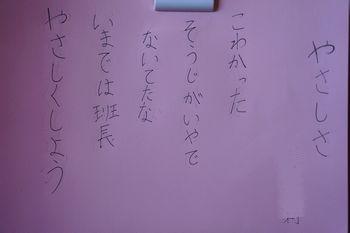 やさしさ
こわかった
そうじがいやで
ないてたな
いまでは班長
やさしくしよう